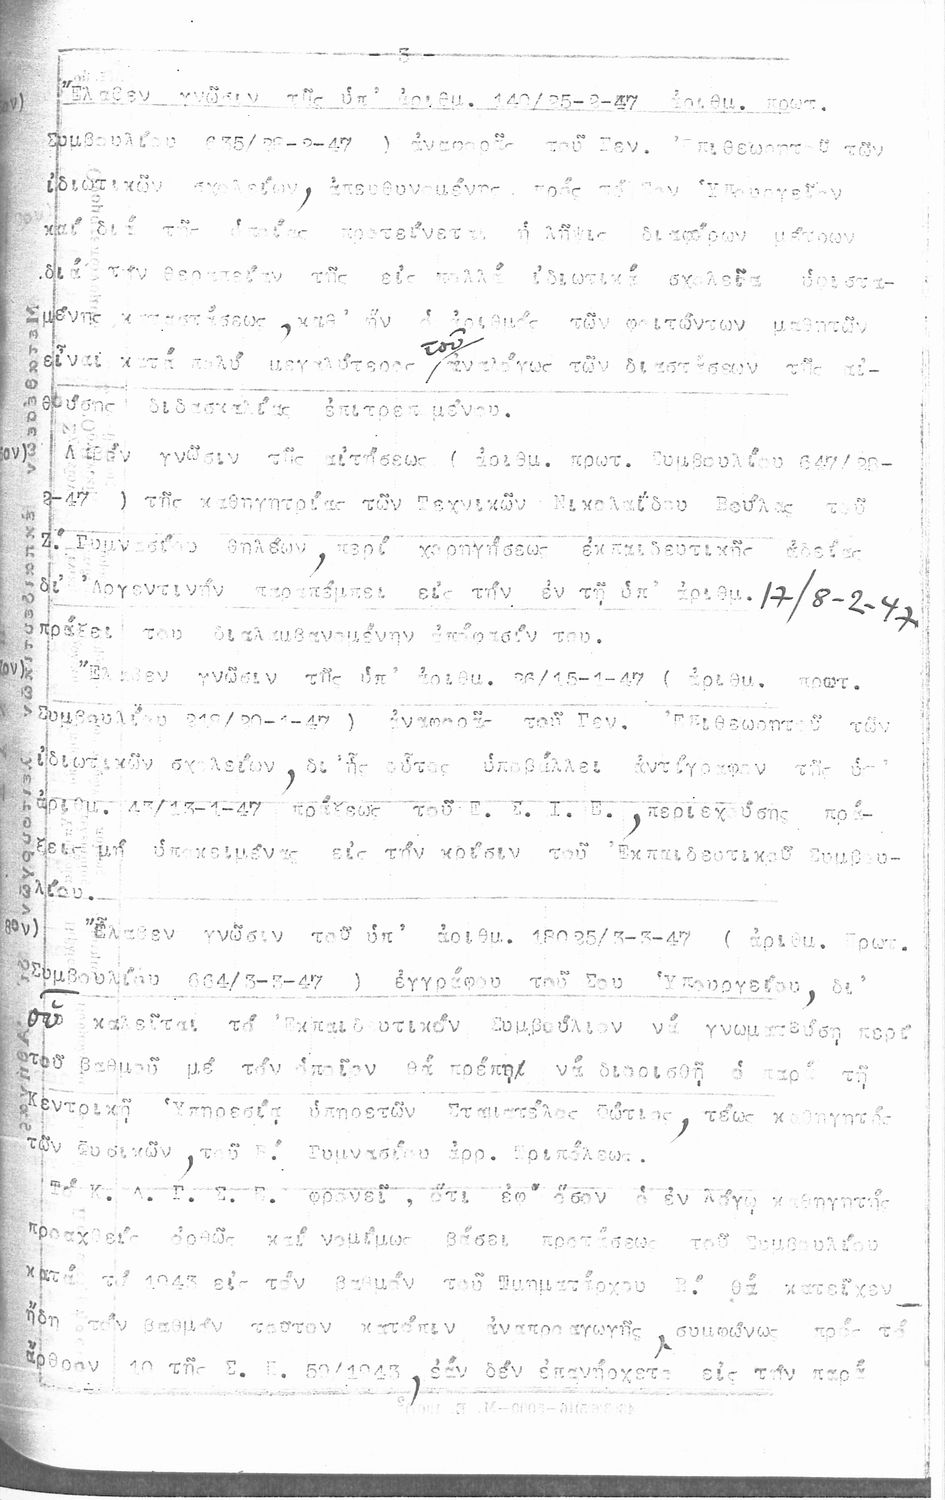 - 3 -
Ἔλαβεν γνῶσιν τῆς ὑπ' ἀριθμ. 140/25-2-47 ἀριθμ. πρωτ.
Συμβουλίου 635/28-2-47 ) ἀναφορᾶς τοῦ Γεν. Ἐπιθεωρητοῦ τῶν
ἰδιωτικῶν σχολείων, ἀπευθυνομένης πρός τό Σον Ὑπουργεῖον
καί διά τῆς ὁποίας προτείνεται ἡ λῆψις διαφόρων μέτρων
διά τήν θεραπείαν τῆς εἰς πολλά ἰδιωτικά σχολεῖα ὑφιστα-
μένης καταστάσεως, καθ' ἥν ὁ ἀριθμός τῶν φοιτώντων μαθητῶν
εἶναι κατά πολύ μεγαλύτερος τοῦ ἀναλόγως τῶν διαστάσεων τῆς αἰ-
θούσης διδασκαλίας ἐπιτρεπομένου.
Λαβόν γνῶσιν τῆς αἰτήσεως ( ἀριθμ. πρωτ. Συμβουλίου 647/28-
2-47 ) τῆς καθηγητρίας τῶν Τεχνικῶν Νικολαΐδου Βούλας τοῦ
Ζ.΄ Γυμνασίου θηλέων, περί χορηγήσεως ἐκπαιδευτικῆς ἀδείας
δι' Ἀργεντινήν παραπέμπει εἰς τήν ἐν τῇ ὑπ' ἀριθμ. 17/8-2-47
πράξει του διαλαμβανομένην ἀπόφασίν του.
Ἔλαβεν γνῶσιν τῆς ὑπ' ἀριθμ. 26/15-1-47 ( ἀριθμ. πρωτ.
Συμβουλίου 212/20-1-47 ) ἀναφορᾶς τοῦ Γεν. Ἐπιθεωρητοῦ τῶν
ἰδιωτικῶν σχολείων, δι' ἧς οὗτος ὑποβάλλει ἀντίγραφον τῆς ὑπ'
ἀριθμ. 43/13-1-47 πράξεως τοῦ Ε. Σ. Ι. Ε., περιεχούσης πρά-
ξεις μή ὑποκειμένας εἰς τήν κρίσιν τοῦ Ἐκπαιδευτικοῦ Συμβου-
λίου.
8ον) Ἔλαβεν γνῶσιν τοῦ ὑπ' ἀριθμ. 18025/3-3-47 ( ἀριθμ. Πρωτ.
Συμβουλίου 664/3-3-47 ) ἐγγράφου τοῦ Σου Ὑπουργείου, δι'
οὗ καλεῖται τό Ἐκπαιδευτικόν Συμβούλιον νά γνωματεύσῃ περί
τοῦ βαθμοῦ μέ τόν ὁποῖον θά πρέπῃ νά διορισθῇ ὁ παρά τῇ
Κεντρικῇ Ὑπηρεσίᾳ ὑπηρετῶν Σταματέλος Φώτιος, τέως καθηγητής
τῶν Φυσικῶν, τοῦ Β.΄ Γυμνασίου ἀρρ. Τριπόλεως.
Τό Κ. Δ. Γ. Σ. Ε. φρονεῖ, ὅτι ἐφ' ὅσον ὁ ἐν λόγῳ καθηγητής
προαχθείς ὀρθῶς καί νομίμως βάσει προτάσεως τοῦ Συμβουλίου
κατά τό 1943 εἰς τόν βαθμόν τοῦ Τμηματάρχου Β.΄ θά κατεῖχεν
ἤδη τόν βαθμόν τοῦτον κατόπιν ἀναπροαγωγῆς, συμφώνως πρός τό
ἄρθρον 10 τῆς Σ. Π. 59/1943, ἐάν δέν ἐπανήρχετο εἰς τήν παρά